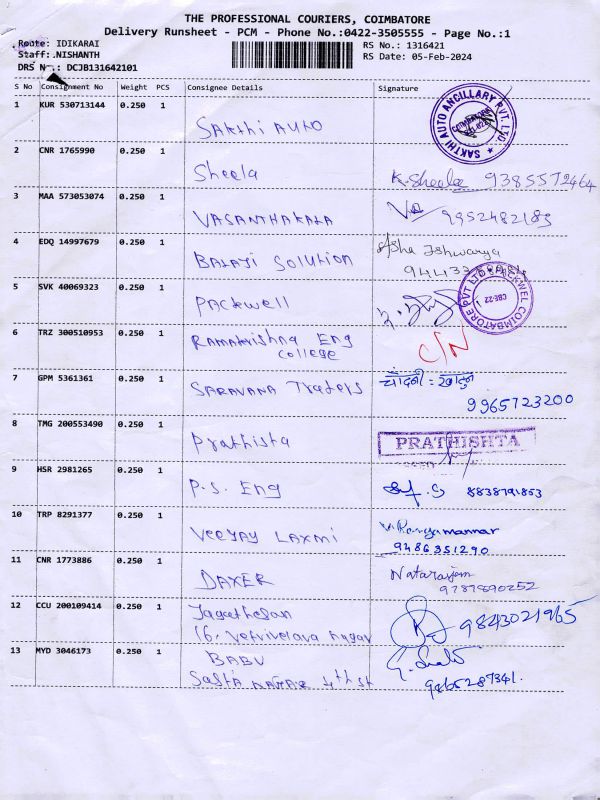 THE PROFESSIONAL COURIERS, COIMBATORE
Delivery Runsheet - PCM - Phone No.:0422-3505555 - Page No.:1
Route: IDIKARAI
Staff: NISHANTH
DRS No.: DCJB131642101
RS No.: 1316421
RS Date: 05-Feb-2024
S No Consignment No Weight PCS Consignee Details Signature
1 KUR 530713144 0.250 1 Sakthi AUTO
SAKTHI AUTO ANCILLARY PVT. LTD.
2 CNR 1765990 0.250 1 Sheela K. Sheela 9385572464
3 MAA 573053074 0.250 1 VASANTHAKALA 9952482183
4 EDQ 14997679 0.250 1 BALAJI Solution Asha Ishwarya
5 SVK 40069323 0.250 1 PACkwell
PACKWEL COIMBATORE PVT LTD
CBE-22
6 TRZ 300510953 0.250 1 RAMAKrishna Eng
College
C/N
7 GPM 5361361 0.250 1 SARAVANA Traders चांदनी : खातुन
9965723200
8 TMG 200553490 0.250 1 Prathista
PRATHISHTA
9 HSR 2981265 0.250 1 P.S. Eng 8838791853
10 TRP 8291377 0.250 1 Veejay LAXMI
9486351290
11 CNR 1773886 0.250 1 DAXER Natarajem
9787890252
12 CCU 200109414 0.250 1 Jagatheesan
16. Vetrivelava Nagar
9843021965
13 MYD 3046173 0.250 1 BABU
Sasta NAGAR 4th st
9865287341.